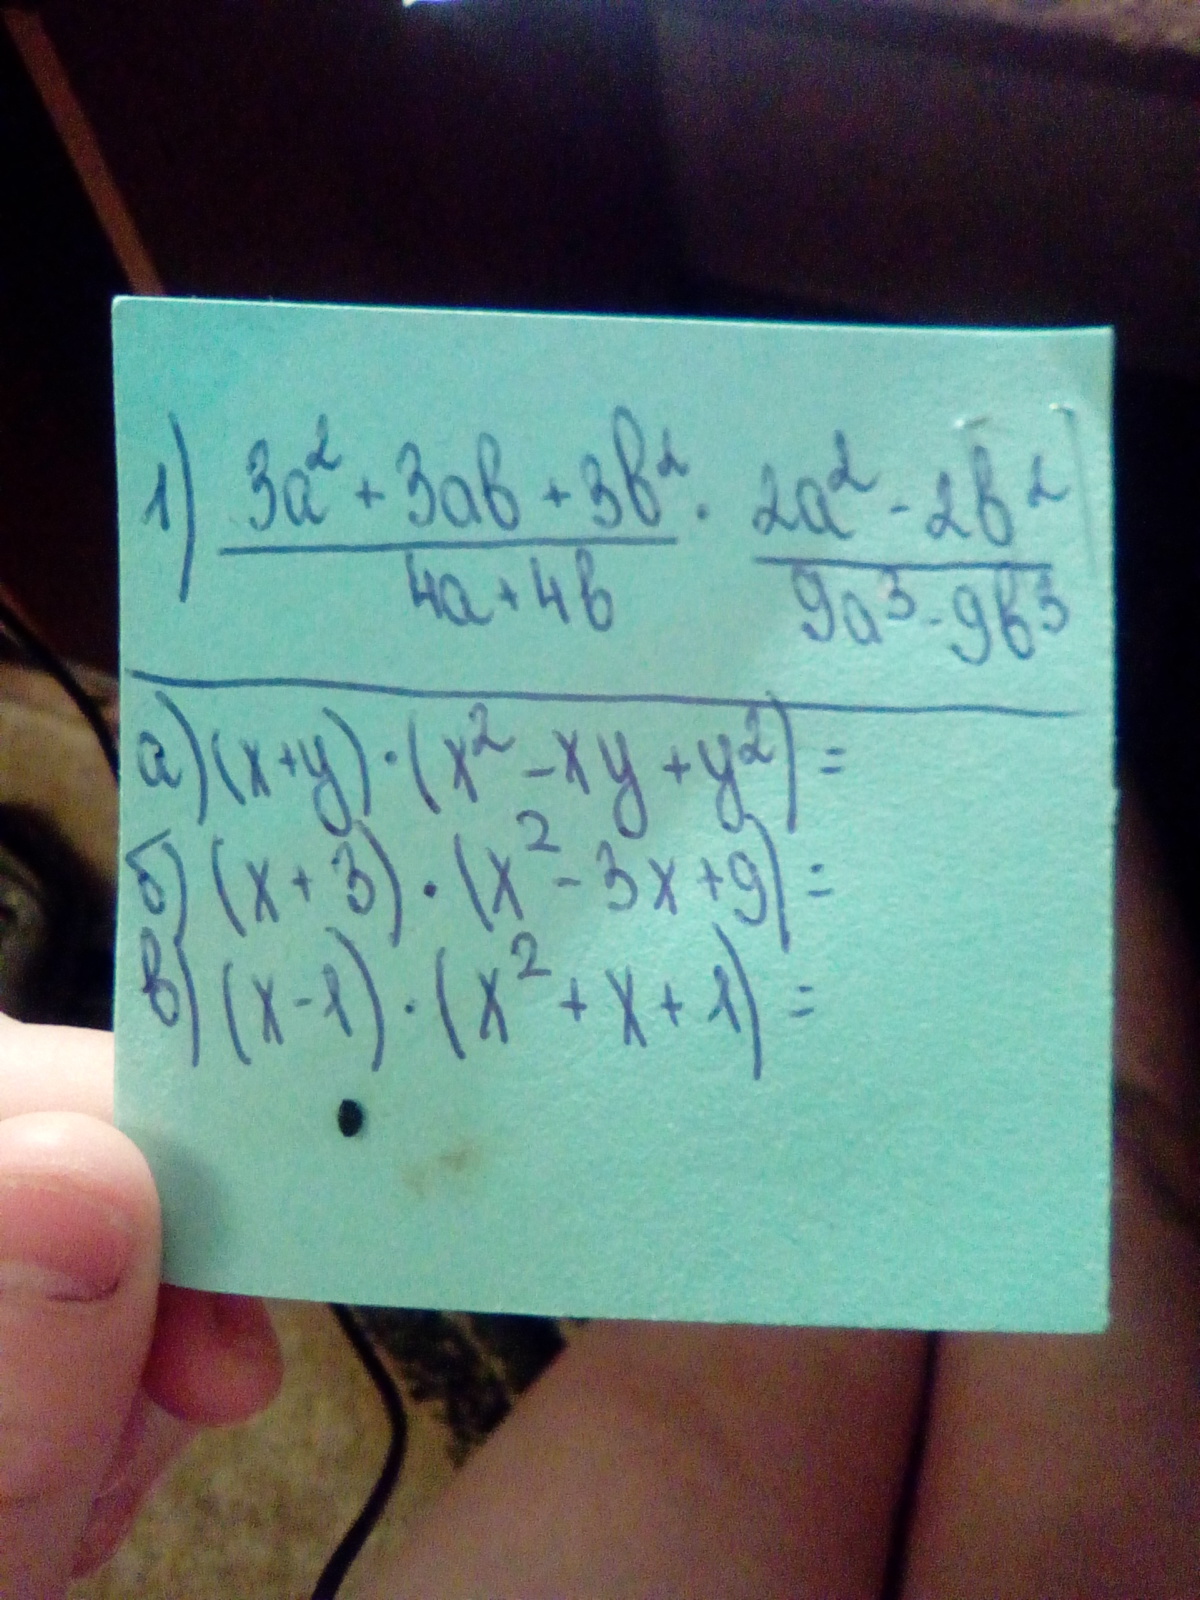 1) (3a² + 3ab + 3b²)/(4a + 4b) · (2a² - 2b²)/(9a³ - 9b³)
а) (x+y)·(x² - xy + y²) =
б) (x + 3)·(x² - 3x + 9) =
в) (x - 1)·(x² + x + 1) =